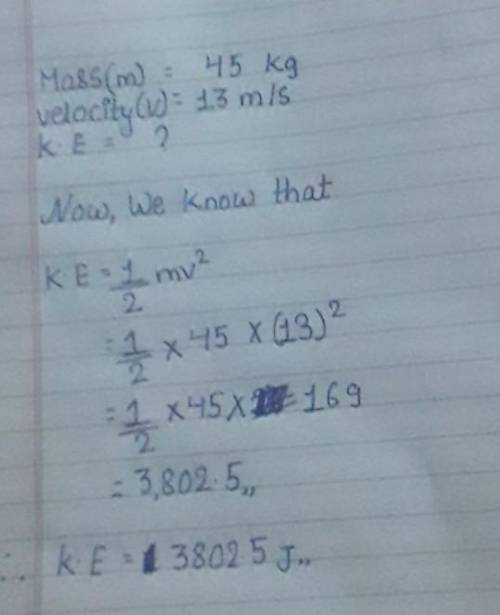 Mass(m) = 45 kg
velocity(v) = 13 m/s
K.E = ?
Now, We know that
K E = 1/2 mv²
= 1/2 × 45 × (13)²
= 1/2 × 45 × = 169
= 3,802.5,,
∴ K.E = 3802.5 J,,